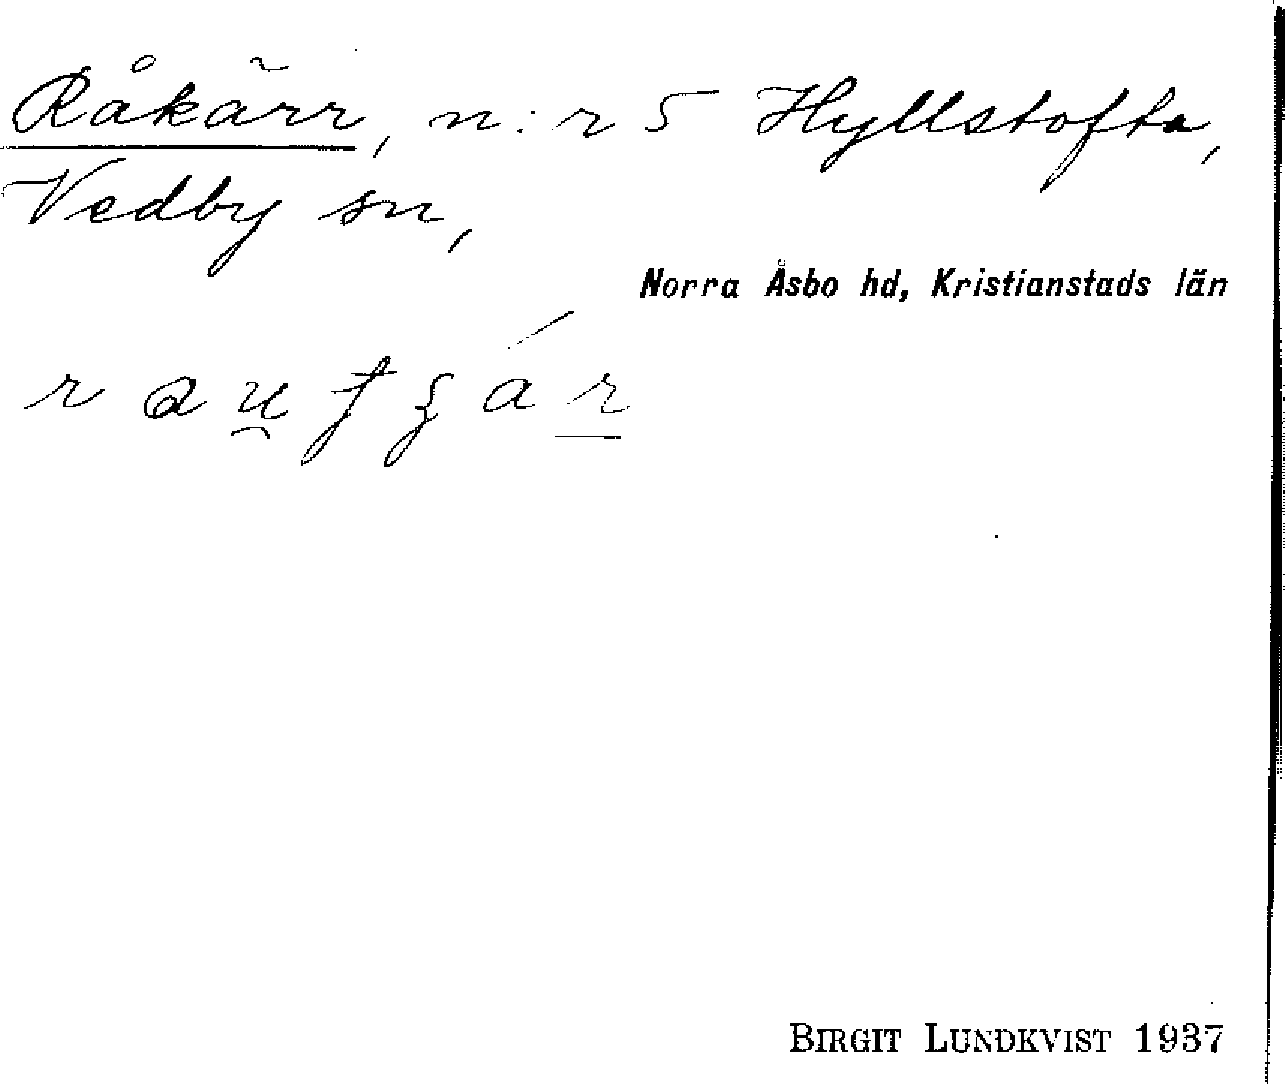 Råkärr, n:r 5 Hyllstofta,
Vedby sn,
Norra Åsbo hd, Kristianstads län
BIRGIT LUNDKVIST 1937